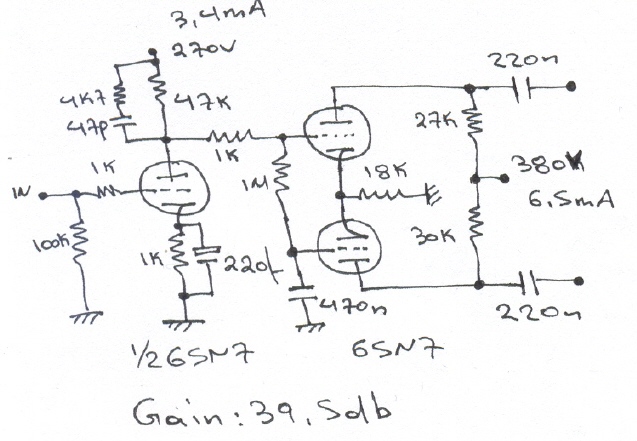 3,4mA
270V
220n
4K7
47K
47p
27K
1K
1K
1M
18K
380V
6.5mA
IN
100K
1K
220μ
30K
470n
220n
1/2 6SN7
6SN7
Gain: 39,5db